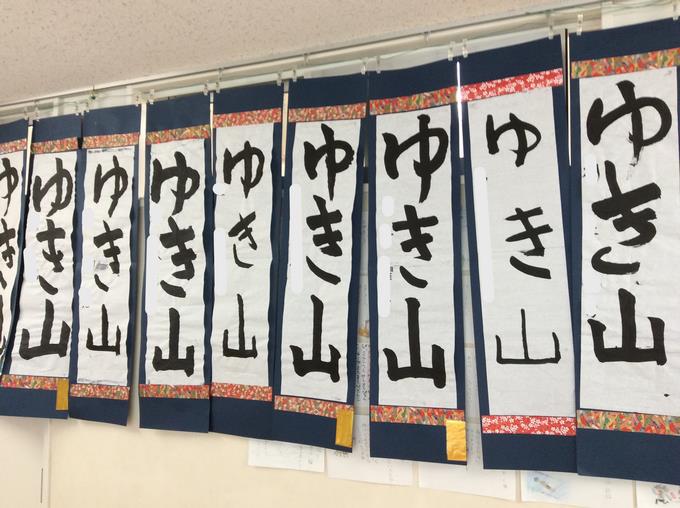 ゆき山
ゆき山
ゆき山
ゆき山
ゆき山
ゆき山
ゆき山
ゆき山
ゆき山